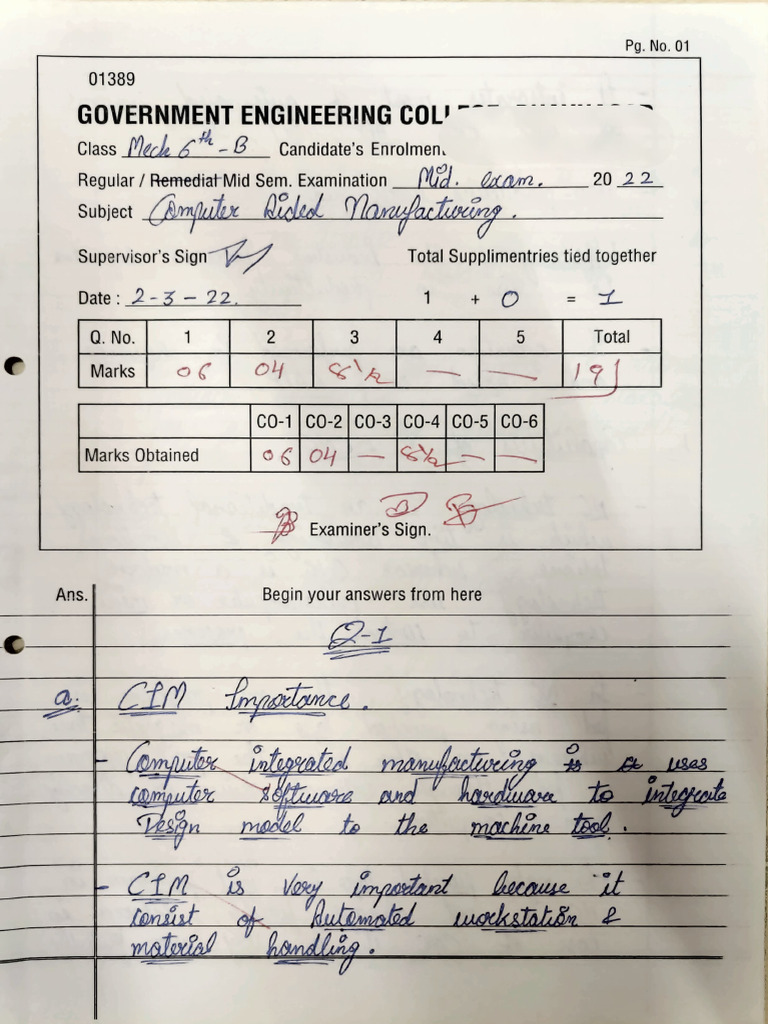 Pg. No. 01
01389
GOVERNMENT ENGINEERING
Class Mech 6th - B Candidate's
Regular / Remedial Mid Sem. Examination Mid. exam. 2022
Subject Computer Aided Manufacturing.
Supervisor's Sign Total Supplimentries tied together
Date : 2-3-22. 1 + 0 = 1
Q. No. 1 2 3 4 5 Total
Marks 06 04 8½ — — 19
CO-1 CO-2 CO-3 CO-4 CO-5 CO-6
Marks Obtained 06 04 — 8½ — —
Examiner's Sign.
Ans. Begin your answers from here
Q-1
a. CIM Importance.
- Computer integrated manufacturing is a uses
computer software and hardware to integrate
Design model to the machine tool.
- CIM is very important because it
consist of Automated workstation &
material handling.